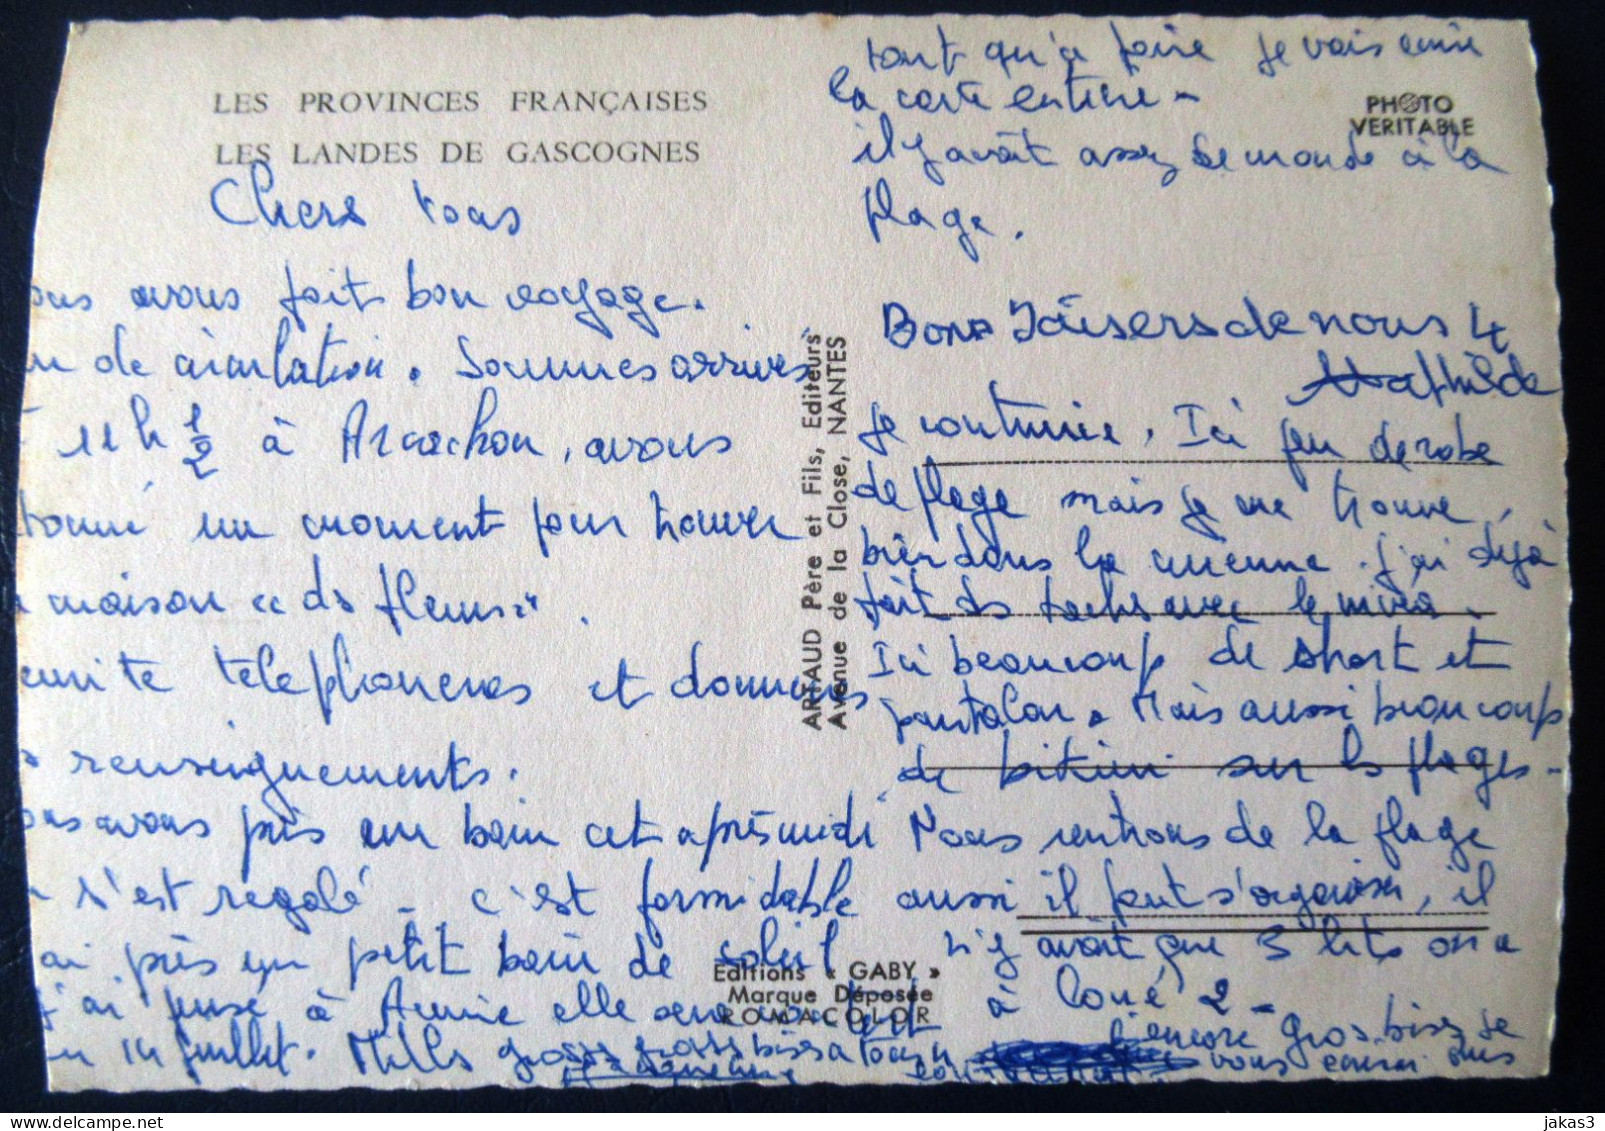 LES PROVINCES FRANÇAISES
LES LANDES DE GASCOGNES
Chers tous
ous avons fait bon voyage.
de circulation. Sommes arrivés
11h 1/2 à Arcachon, avons
tonné un moment pour trouver
maison "des fleurs".
ensuite telephonerons et donnerons
renseignements.
ous avons pris un bain cet après midi
s'est regalé - c'est formidable
ai pris un petit bain de soleil
j'ai pensé à Annie elle sera
14 juillet. Mille grosses grosses bises a tous
PHOTO
VERITABLE
tant qu'à faire je vais écrire
la carte entière -
il y avait assez de monde à la
plage.
Bons Baisers de nous 4
Mathilde
je continue, Ici peu de robe
de plage mais je me trouve
bien dans la mienne. j'ai déjà
fait des taches avec le
Ici beaucoup de short et
pantalon. Mais aussi beaucoup
de bikini sur les plages -
Nous rentrons de la plage
aussi il faut s'organiser, il
n'y avait que 3 lits on a
loué 2 -
encore gros bises je
vous écrirai plus
ARTAUD Père et Fils, Editeurs
Avenue de la Close, NANTES
Editions « GABY »
Marque Déposée
ROMACOLOR
© delcampe.net
jakas3